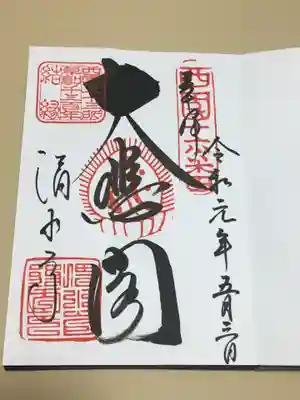 西国十六番
奉拝
令和元年五月三日
大悲閣
結縁
清水寺